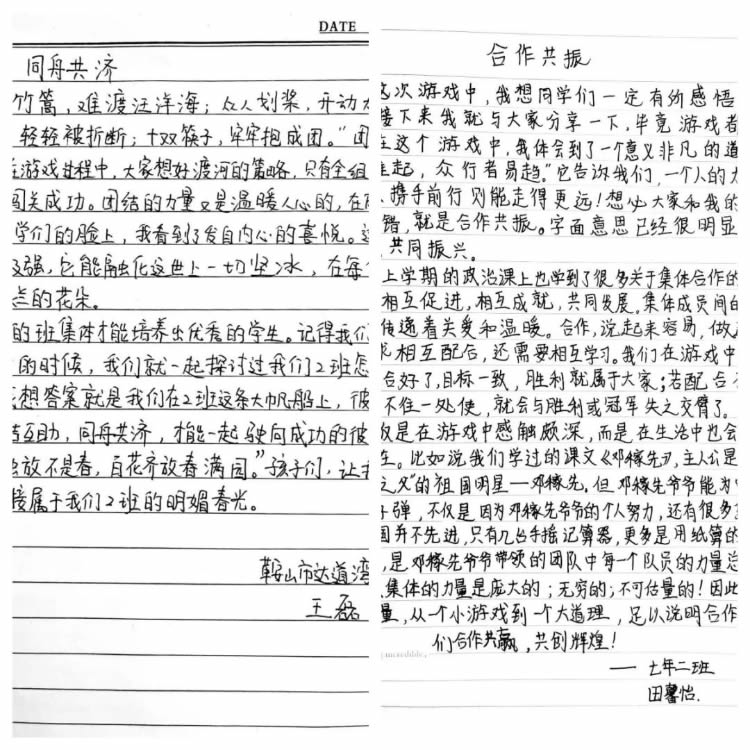 DATE
同舟共济
竹篙，难渡汪洋海；众人划桨，开动大
轻轻被折断；十双筷子，牢牢抱成团。"团
游戏过程中，大家想好渡河的策略，只有全组
闯关成功。团结的力量又是温暖人心的，在
学们的脸上，我看到了发自内心的喜悦。这
强，它能融化这世上一切坚冰，在每个
的花朵。
的班集体才能培养出优秀的学生。记得我们
的时候，我们就一起探讨过我们2班怎
想答案就是我们在2班这条大帆船上，彼
互助，同舟共济，才能一起驶向成功的彼
放不是春，百花齐放春满园。"孩子们，让我
接属于我们2班的明媚春光。
鞍山市达道湾
王磊
合作共振
这次游戏中，我想同学们一定有的感悟
接下来我就与大家分享一下，毕竟游戏者
在这个游戏中，我体会到了一个意义非凡的道
难起，众行者易趋。"它告诉我们，一个人的力
，携手前行则能走得更远！想必大家和我的
错，就是合作共振。字面意思已经很明显
共同振兴。
上学期的政治课上也学到了很多关于集体合作的
相互促进，相互成就，共同发展。集体成员间的
传递着关爱和温暖。合作，说起来容易，做
相互配合，还需要相互学习。我们在游戏中
合好了，目标一致，胜利就属于大家；若配合
不住一处使，就会与胜利或冠军失之交臂了。
仅是在游戏中感触颇深，而是在生活中也会
在。比如说我们学过的课文《邓稼先》，主人公是
之父"的祖国明星——邓稼先。但邓稼先爷爷能为
弹，不仅是因为邓稼先爷爷的个人努力，还有很多
国并不先进，只有几台手摇记算器，更多是用纸算的
，是邓稼先爷爷带领的团队中每一个队员的力量总
集体的力量是庞大的；无穷的；不可估量的！因此
量，从一个小游戏到一个大道理，足以说明合作
们合作共赢，共创辉煌！
incredible.
—— 七年二班
田馨怡.